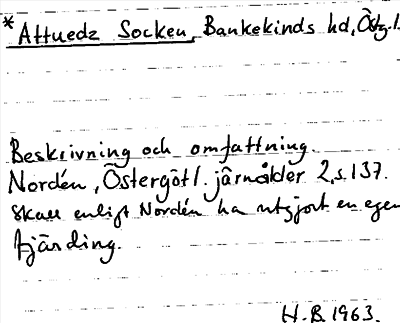 *Attuedz Socken, Bankekinds hd, Östg.l.
Beskrivning och omfattning.
Nordén, Östergötl. järnålder 2, s. 137.
Skall enligt Nordén ha utgjort en egen
fjärding.
H.B. 1963.